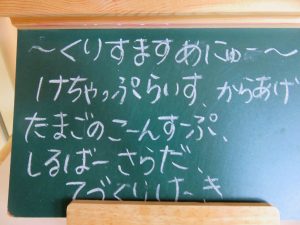 ～くりすますめにゅー～
けちゃっぷらいす、からあげ
たまごのこーんすーぷ、
しるばーさらだ、
てづくりけーき